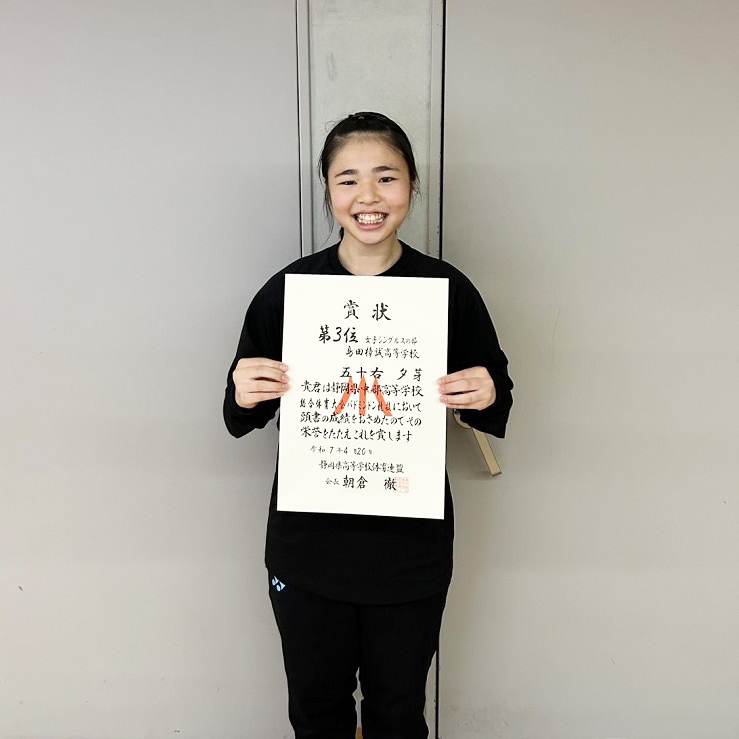 賞状
第3位 女子シングルスの部
島田樟誠高等学校
五十右 夕芽
貴君は静岡県中部高等学校
総合体育大会バドミントン競技において
頭書の成績をおさめたのでその
栄誉をたたえこれを賞します
令和7年4月20日
静岡県高等学校体育連盟
会長 朝倉 徹